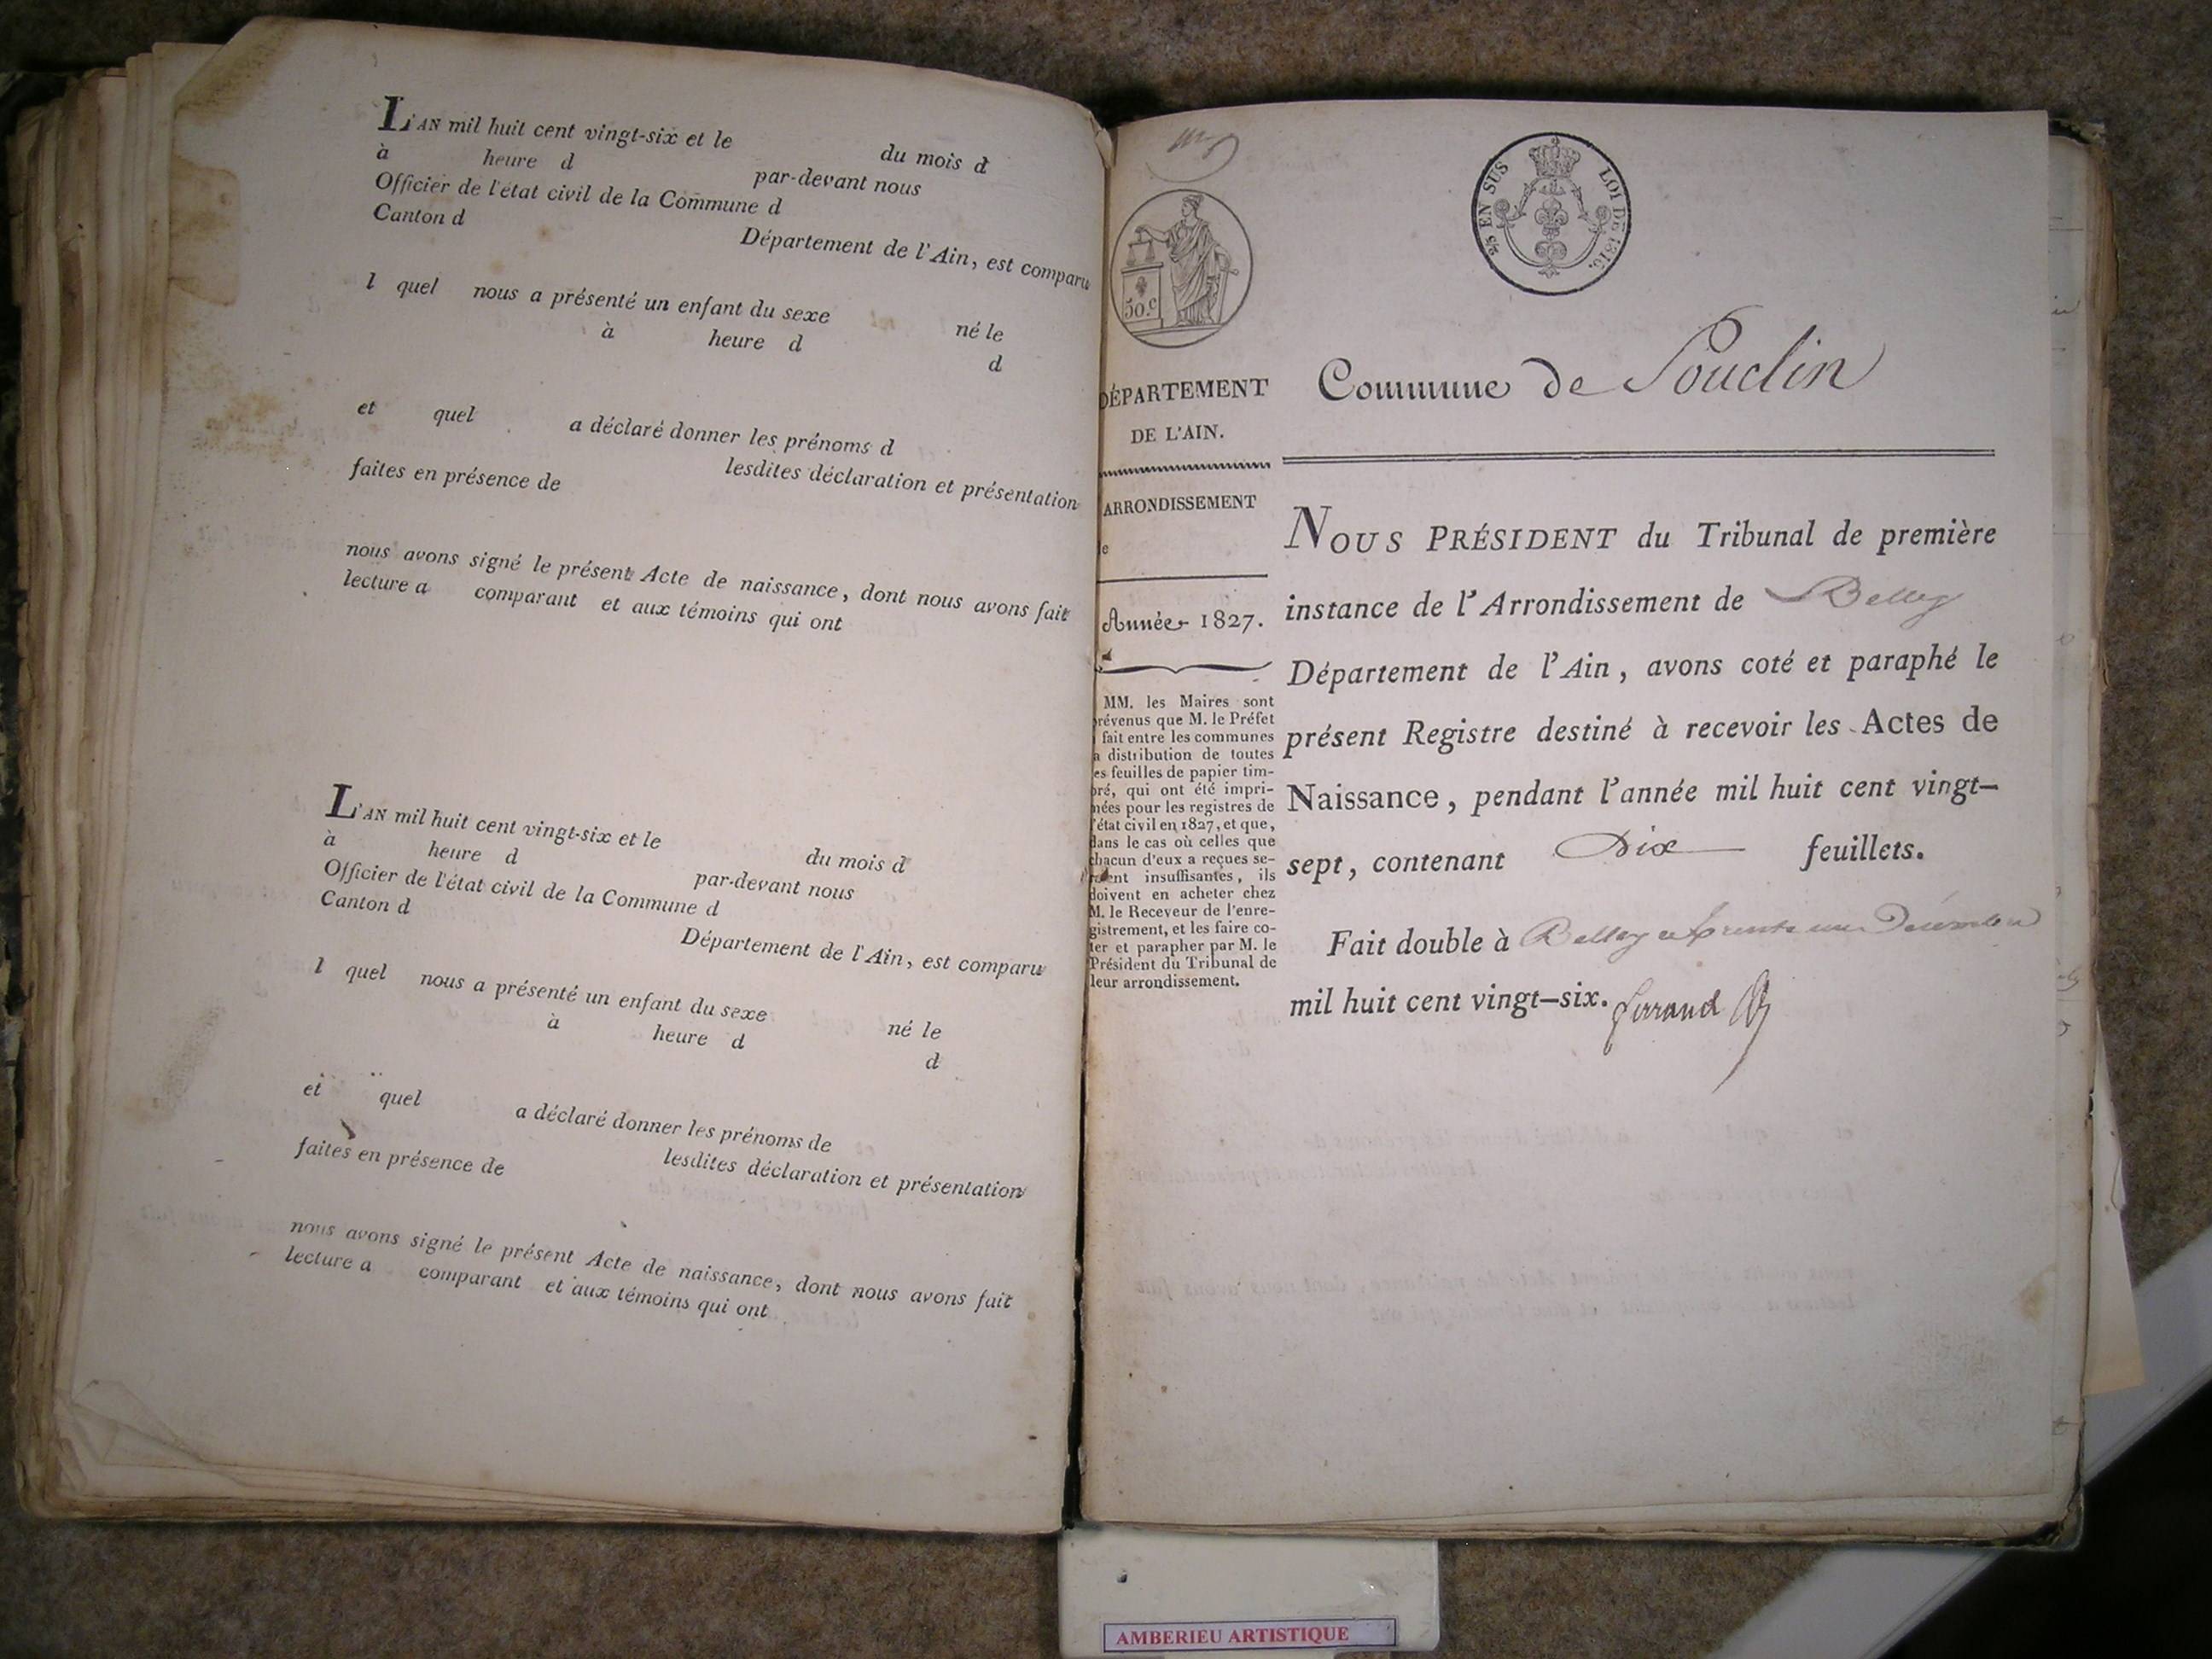 L'AN mil huit cent vingt-six et le du mois d
à heure d par-devant nous
Officier de l'état civil de la Commune d
Canton d
Département de l'Ain, est comparu
l quel nous a présenté un enfant du sexe
né le
à heure d
d
et quel a déclaré donner les prénoms d
lesdites déclaration et présentation
faites en présence de
nous avons signé le présent Acte de naissance, dont nous avons fait
lecture a comparant et aux témoins qui ont
L'AN mil huit cent vingt-six et le du mois d
à heure d par-devant nous
Officier de l'état civil de la Commune d
Canton d
Département de l'Ain, est comparu
l quel nous a présenté un enfant du sexe
né le
à heure d
d
et quel a déclaré donner les prénoms de
lesdites déclaration et présentation
faites en présence de
nous avons signé le présent Acte de naissance, dont nous avons fait
lecture a comparant et aux témoins qui ont
EN SUS LOI DE 1816.
50.c
DÉPARTEMENT
DE L'AIN.
ARRONDISSEMENT
e
Année 1827.
MM. les Maires sont
prévenus que M. le Préfet
fait entre les communes
a distribution de toutes
es feuilles de papier tim-
bré, qui ont été impri-
mées pour les registres de
l'état civil en 1827, et que,
dans le cas où celles que
chacun d'eux a reçues se-
raient insuffisantes, ils
doivent en acheter chez
M. le Receveur de l'enre-
gistrement, et les faire co-
ter et parapher par M. le
Président du Tribunal de
leur arrondissement.
Commune de Souclin
NOUS PRÉSIDENT du Tribunal de première
instance de l'Arrondissement de Belley
Département de l'Ain, avons coté et paraphé le
présent Registre destiné à recevoir les Actes de
Naissance, pendant l'année mil huit cent vingt-
sept, contenant Dix feuillets.
Fait double à Belley le trente un Décembre
mil huit cent vingt-six. Ferrand
AMBERIEU ARTISTIQUE